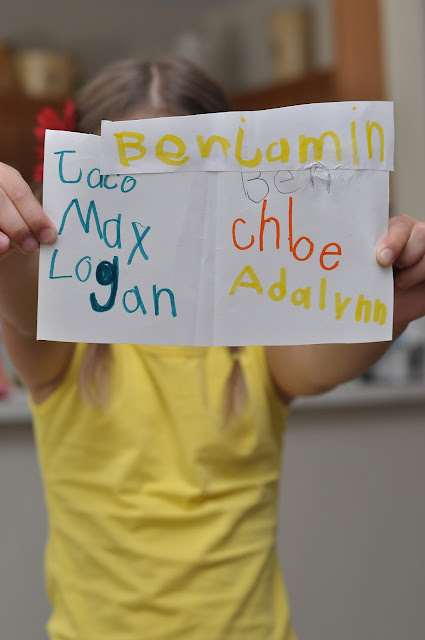 Benjamin
Taco
Max
Logan
Ben
chloe
Adalynn